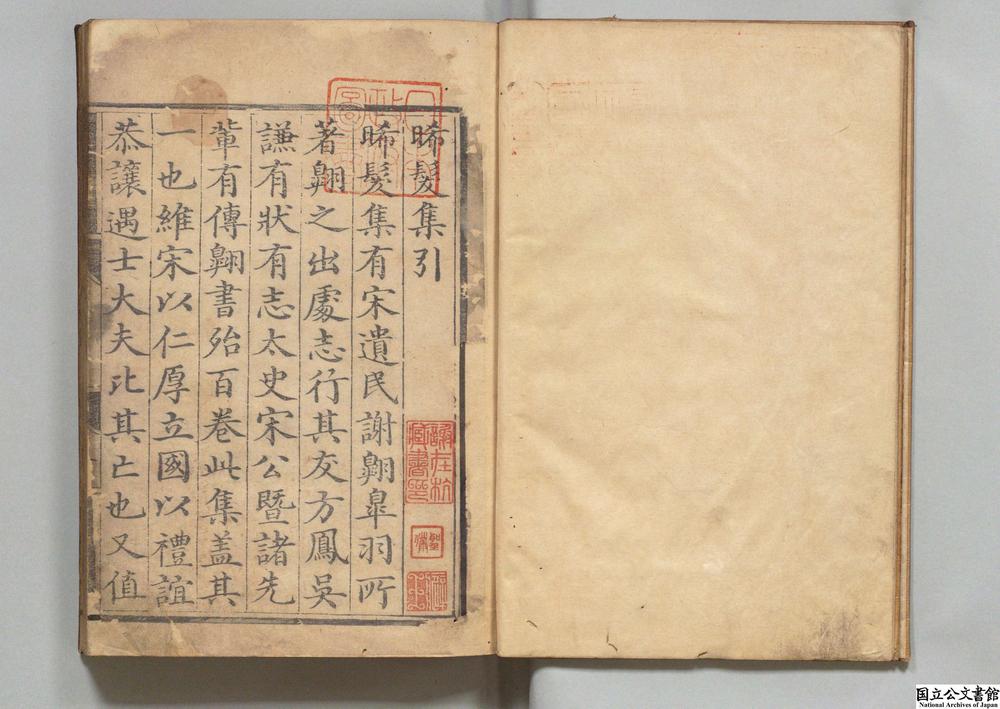 晞髮集引
晞髮集有宋遺民謝翱臯羽所
著翱之出處志行其友方鳳吳
謙有狀有志太史宋公暨諸先
軰有傳翱書殆百卷此集盖其
一也維宋以仁厚立國以禮誼
恭讓遇士大夫比其亡也又值
謝在杭
家藏書印
国立公文書館
National Archives of Japan